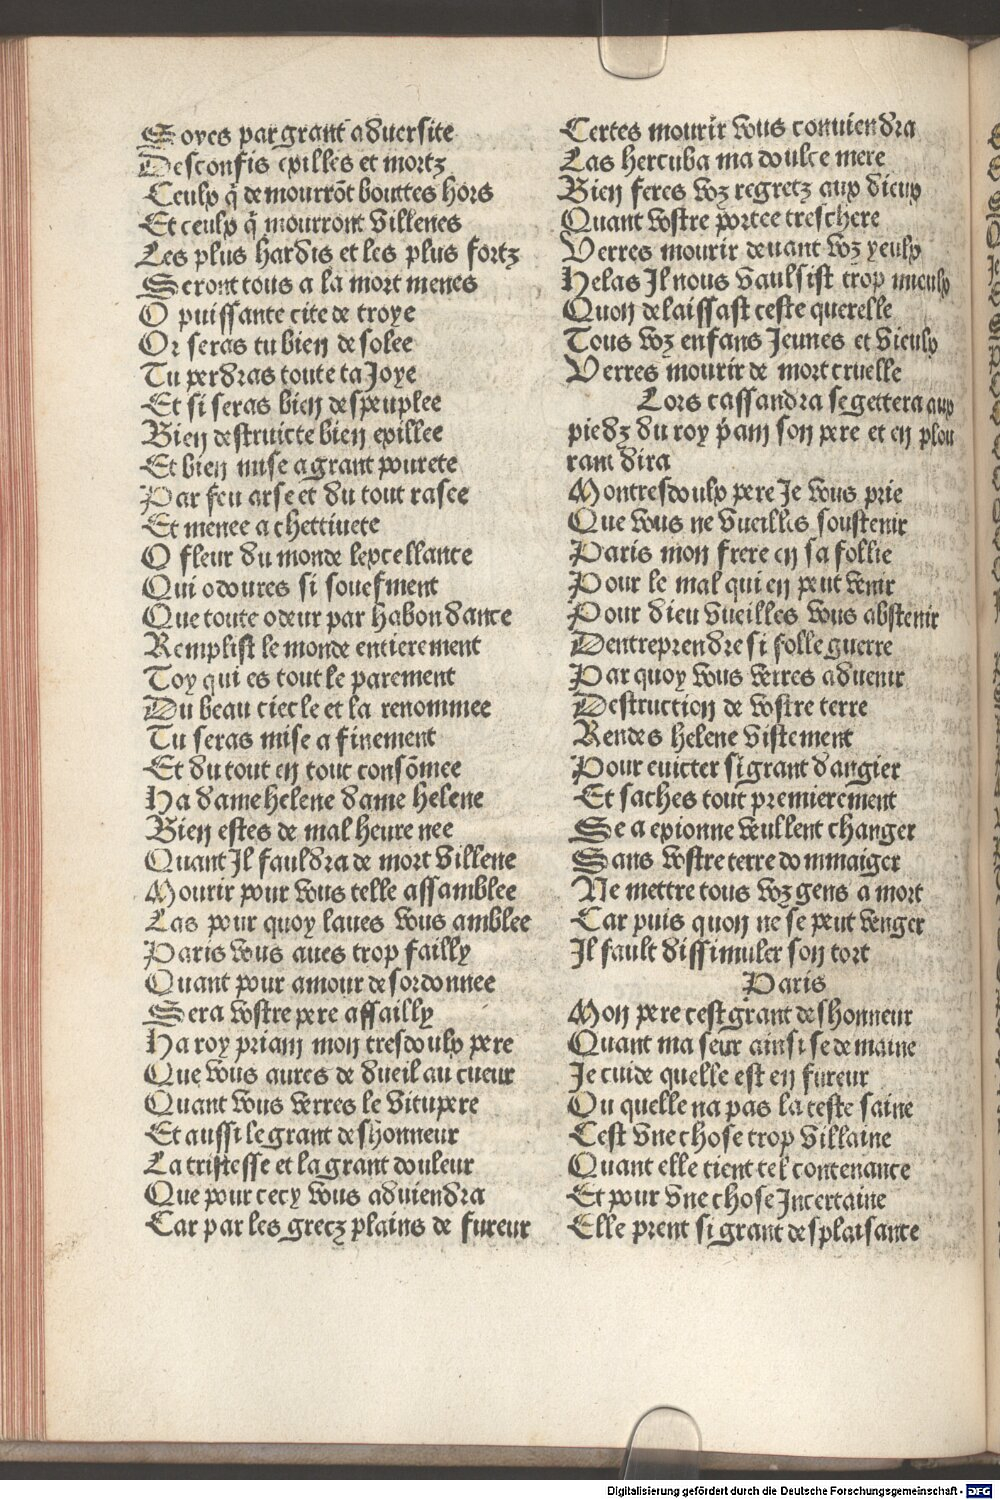 Soyes par grant aduersite
Desconfis epilles et mortz
Ceulx q̄ de mourrōt bouttes hors
Et ceulx q̄ mourront villenes
Les plus hardis et les plus fortz
Seront tous a la mort menes
O puissante cite de troye
Or seras tu bien desolee
Tu perdras toute ta Joye
Et si seras bien despeuplee
Bien destruicte bien epillee
Et bien mise a grant pourete
Par feu arse et du tout rasee
Et menee a chettiuete
O fleur du monde lexcellante
Qui odoures si souefment
Que toute odeur par habondance
Remplist le monde entierement
Toy qui es tout le parement
Du beau ciecle et la renommee
Tu seras mise a finement
Et du tout en tout consōmee
Ha dame helene dame helene
Bien estes de mal heure nee
Quant Il fauldra de mort villene
Mourir pour vous telle assamblee
Las pour quoy laues vous amblee
Paris vous aues trop failly
Quant pour amour desordonnee
Sera vostre pere assailly
Ha roy priam mon tresdoulx pere
Que vous aures de dueil au cueur
Quant vous verres le vitupere
Et aussi le grant deshonneur
La tristesse et la grant douleur
Que pour cecy vous aduiendra
Car par les grecz plains de fureur
Certes mourir vous conuiendra
Las hercuba ma doulce mere
Bien feres voz regretz aux dieux
Quant vostre portee treschere
Verres mourir deuant voz yeulx
Helas Il nous vaulsist trop mieulx
Quon delaissast ceste querelle
Tous voz enfans Jeunes et vieulx
Verres mourir de mort cruelle
Lors cassandra se gettera aux
piedz du roy p̄am son pere et en plou
rant dira
Montresdoulx pere Je vous prie
Que vous ne vueilles soustenir
Paris mon frere en sa follie
Pour le mal qui en peut venir
Pour dieu vueilles vous abstenir
Dentreprendre si folle guerre
Par quoy vous verres aduenir
Destruction de vostre terre
Rendes helene vistement
Pour euicter si grant dangier
Et saches tout premierement
Se a epionne veullent changer
Sans vostre terre dommaiger
Ne mettre tous voz gens a mort
Car puis quon ne se peut venger
Il fault dissimuler son tort
Paris
Mon pere cest grant deshonneur
Quant ma seur ainsi se demaine
Je cuide quelle est en fureur
Ou quelle na pas la teste saine
Cest vne chose trop villaine
Quant elle tient tel contenance
Et pour vne chose Incertaine
Elle prent si grant desplaisance
Digitalisierung gefördert durch die Deutsche Forschungsgemeinschaft - DFG